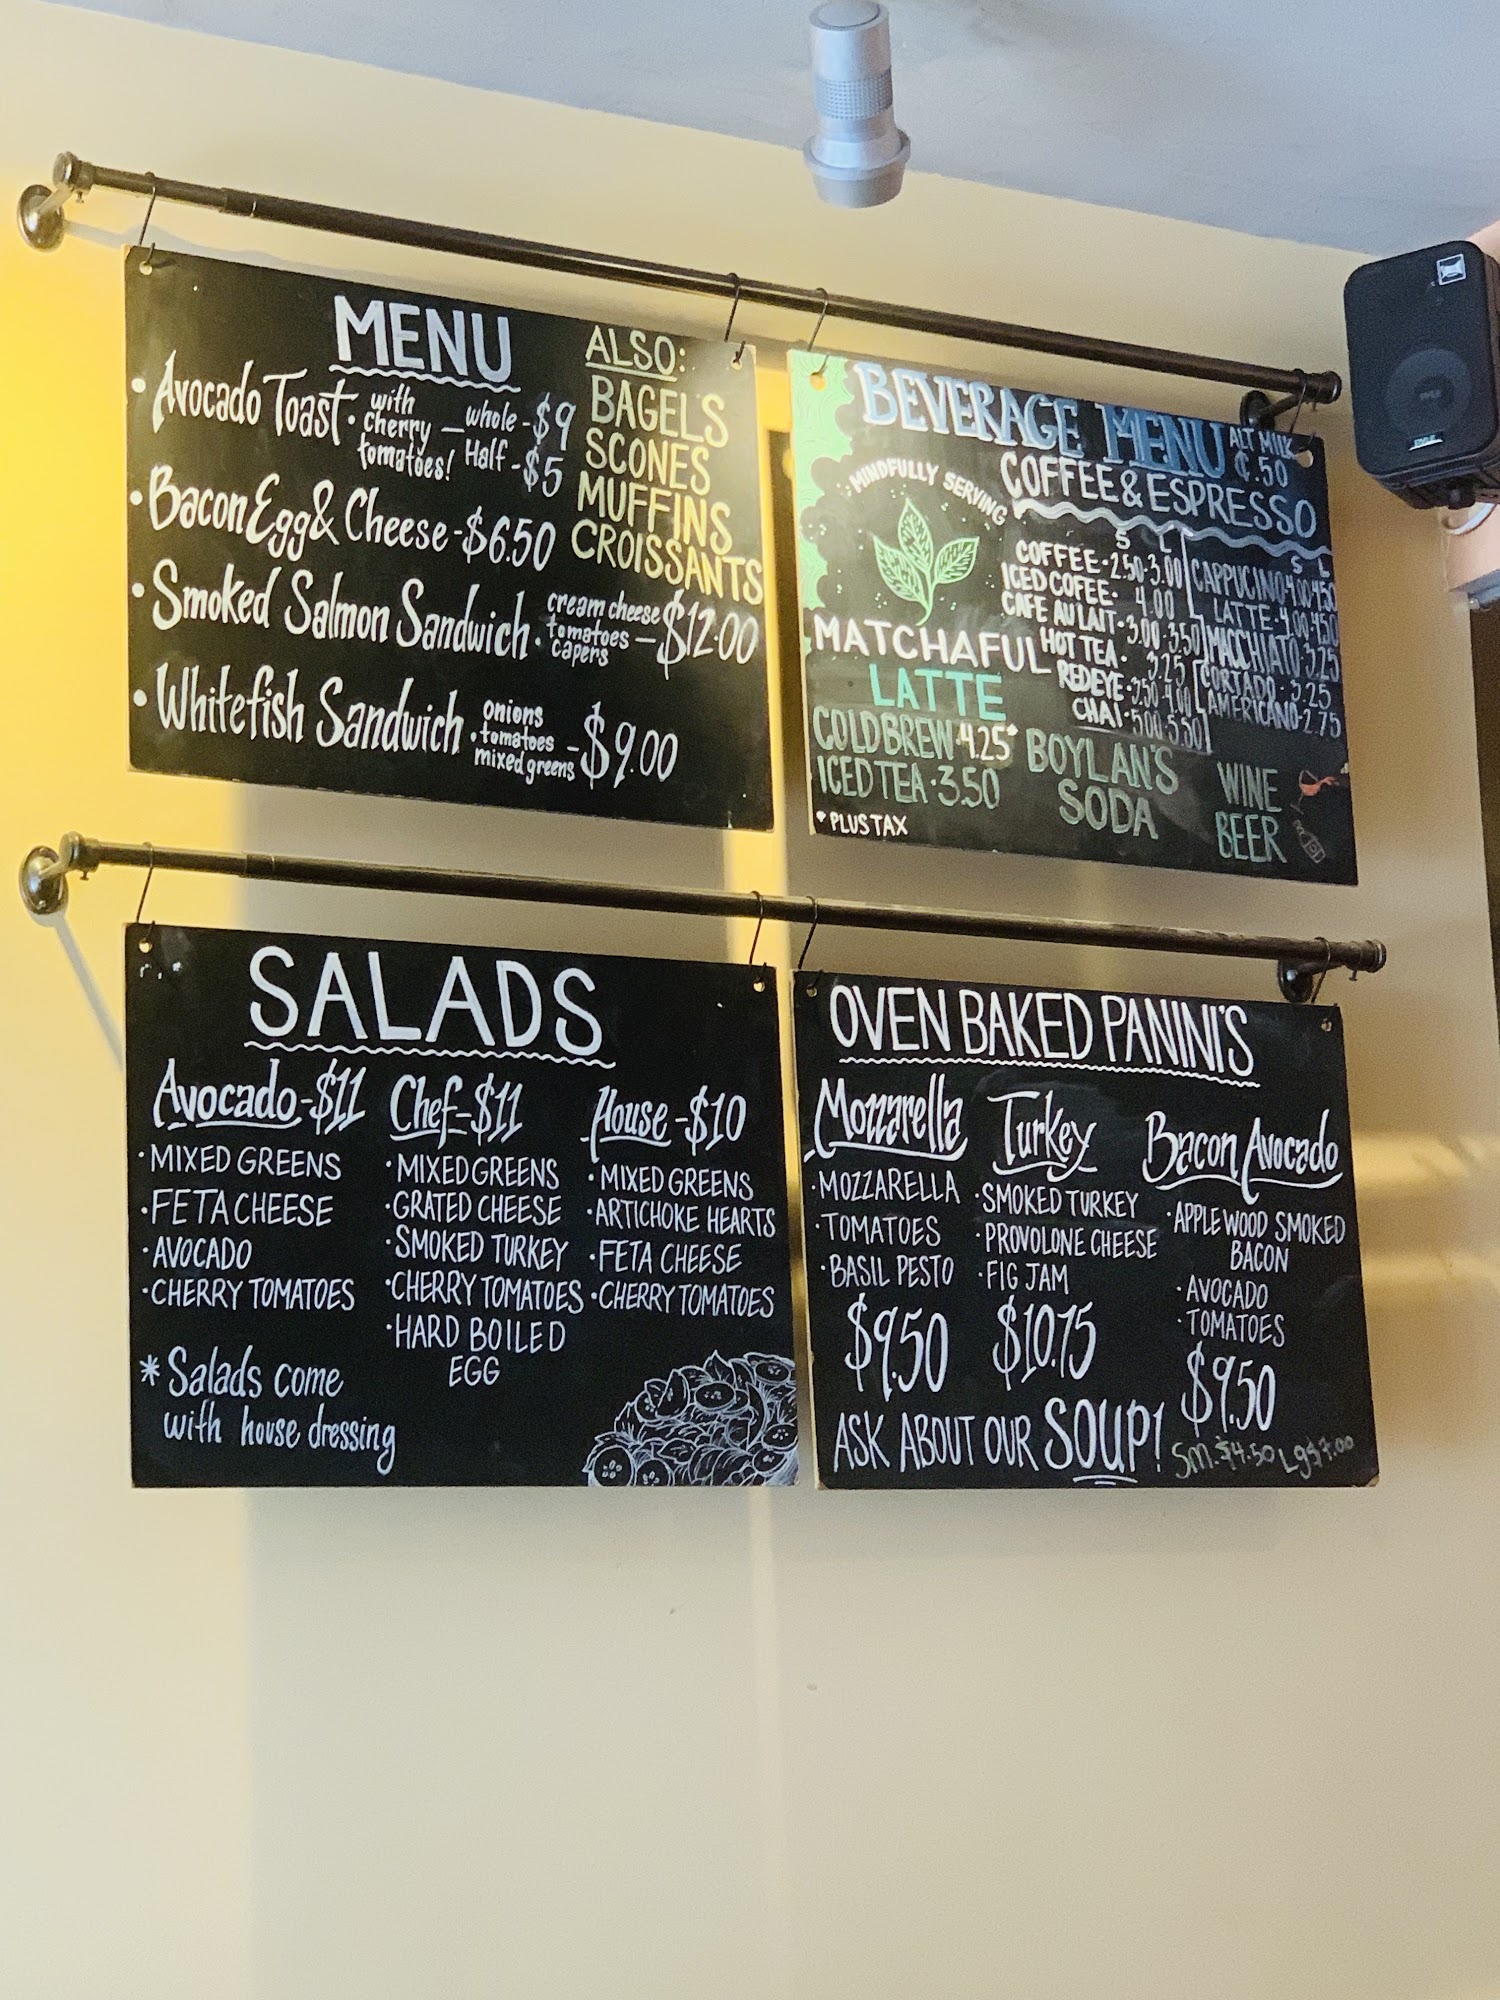 MENU
• Avocado Toast • with cherry tomatoes! — whole - $9
Half - $5
• Bacon Egg & Cheese - $6.50
• Smoked Salmon Sandwich • cream cheese tomatoes capers — $12.00
• Whitefish Sandwich • onions • tomatoes mixed greens - $9.00
ALSO:
BAGELS
SCONES
MUFFINS
CROISSANTS
BEVERAGE MENU
ALT MILK
¢.50
MINDFULLY SERVING
MATCHAFUL
LATTE
COLD BREW • 4.25*
ICED TEA • 3.50
* PLUS TAX
COFFEE & ESPRESSO
S L
COFFEE • 2.50 • 3.00
ICED COFEE • 4.00
CAFE AU LAIT • 3.00 • 3.50
HOT TEA • 3.25
REDEYE • 3.50 • 4.00
CHAI • 5.00 • 5.50
S L
CAPPUCINO • 4.00 • 4.50
LATTE • 4.00 • 4.50
MACCHIATO • 3.25
CORTADO • 3.25
AMERICANO • 2.75
BOYLAN'S
SODA
WINE
BEER
SALADS
Avocado - $11
• MIXED GREENS
• FETA CHEESE
• AVOCADO
• CHERRY TOMATOES
Chef - $11
• MIXED GREENS
• GRATED CHEESE
• SMOKED TURKEY
• CHERRY TOMATOES
• HARD BOILED
EGG
House - $10
• MIXED GREENS
• ARTICHOKE HEARTS
• FETA CHEESE
• CHERRY TOMATOES
* Salads come
with house dressing
OVEN BAKED PANINI'S
Mozzarella
• MOZZARELLA
• TOMATOES
• BASIL PESTO
$9.50
Turkey
• SMOKED TURKEY
• PROVOLONE CHEESE
• FIG JAM
$10.75
Bacon Avocado
• APPLEWOOD SMOKED
BACON
• AVOCADO
• TOMATOES
$9.50
ASK ABOUT OUR SOUP!
Sm. $4.50 Lg $7.00